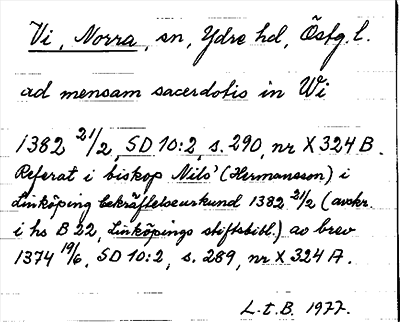 Vi, Norra, sn, Ydre hd, Östg. l.
ad mensam sacerdotis in Wi
1382 21/2, SD 10:2, s. 290, nr X 324 B.
Referat i biskop Nils' (Hermansson) i
Linköping bekräftelseurkund 1382 21/2 (avskr.
i hs B 22, Linköpings stiftsbibl.) av brev
1374 19/6, SD 10:2, s. 289, nr X 324 A.
L.t.B. 1977.